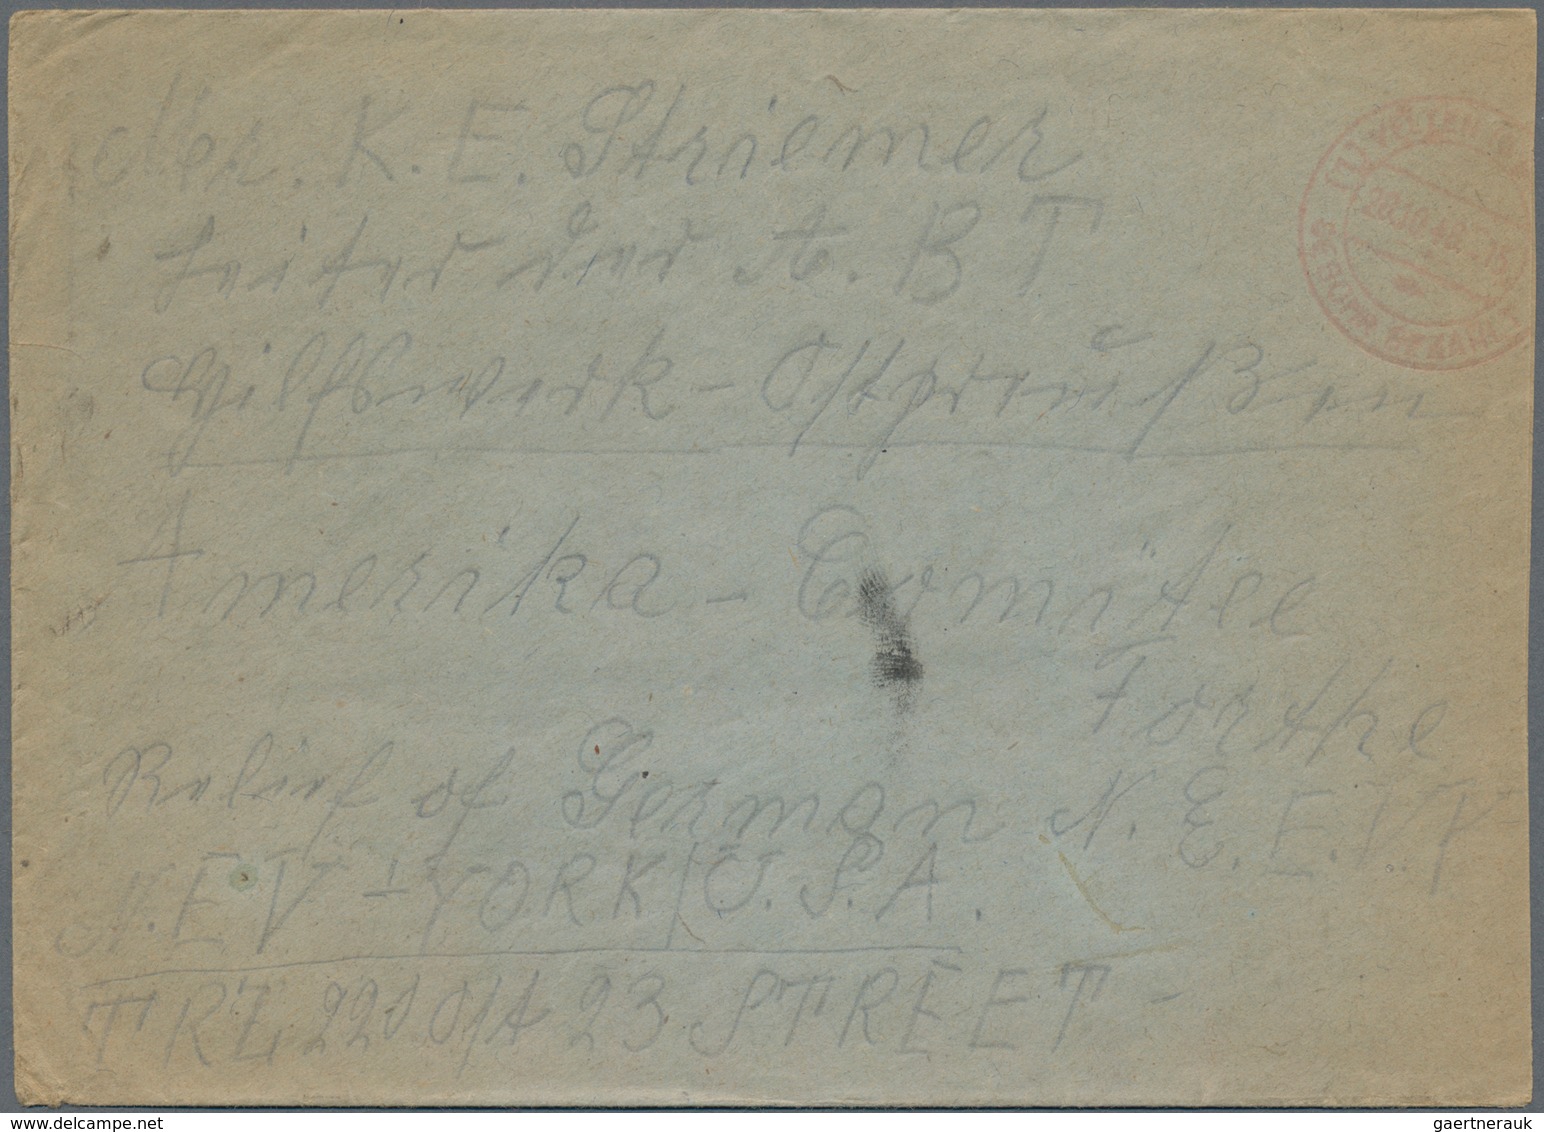 Mer. K. E. Striemer
Leiter der A. B T
Hilfswerk - Ostpreußen
Amerika - Comitee
For the
Relief of German N. E. E. V. V
N. E V - YORK / U. S. A.
TRZ 220 O/A 23 STREET -
20.10.48.-15
GEBÜHR BEZAHLT
delcampe.net
gaertnerauk